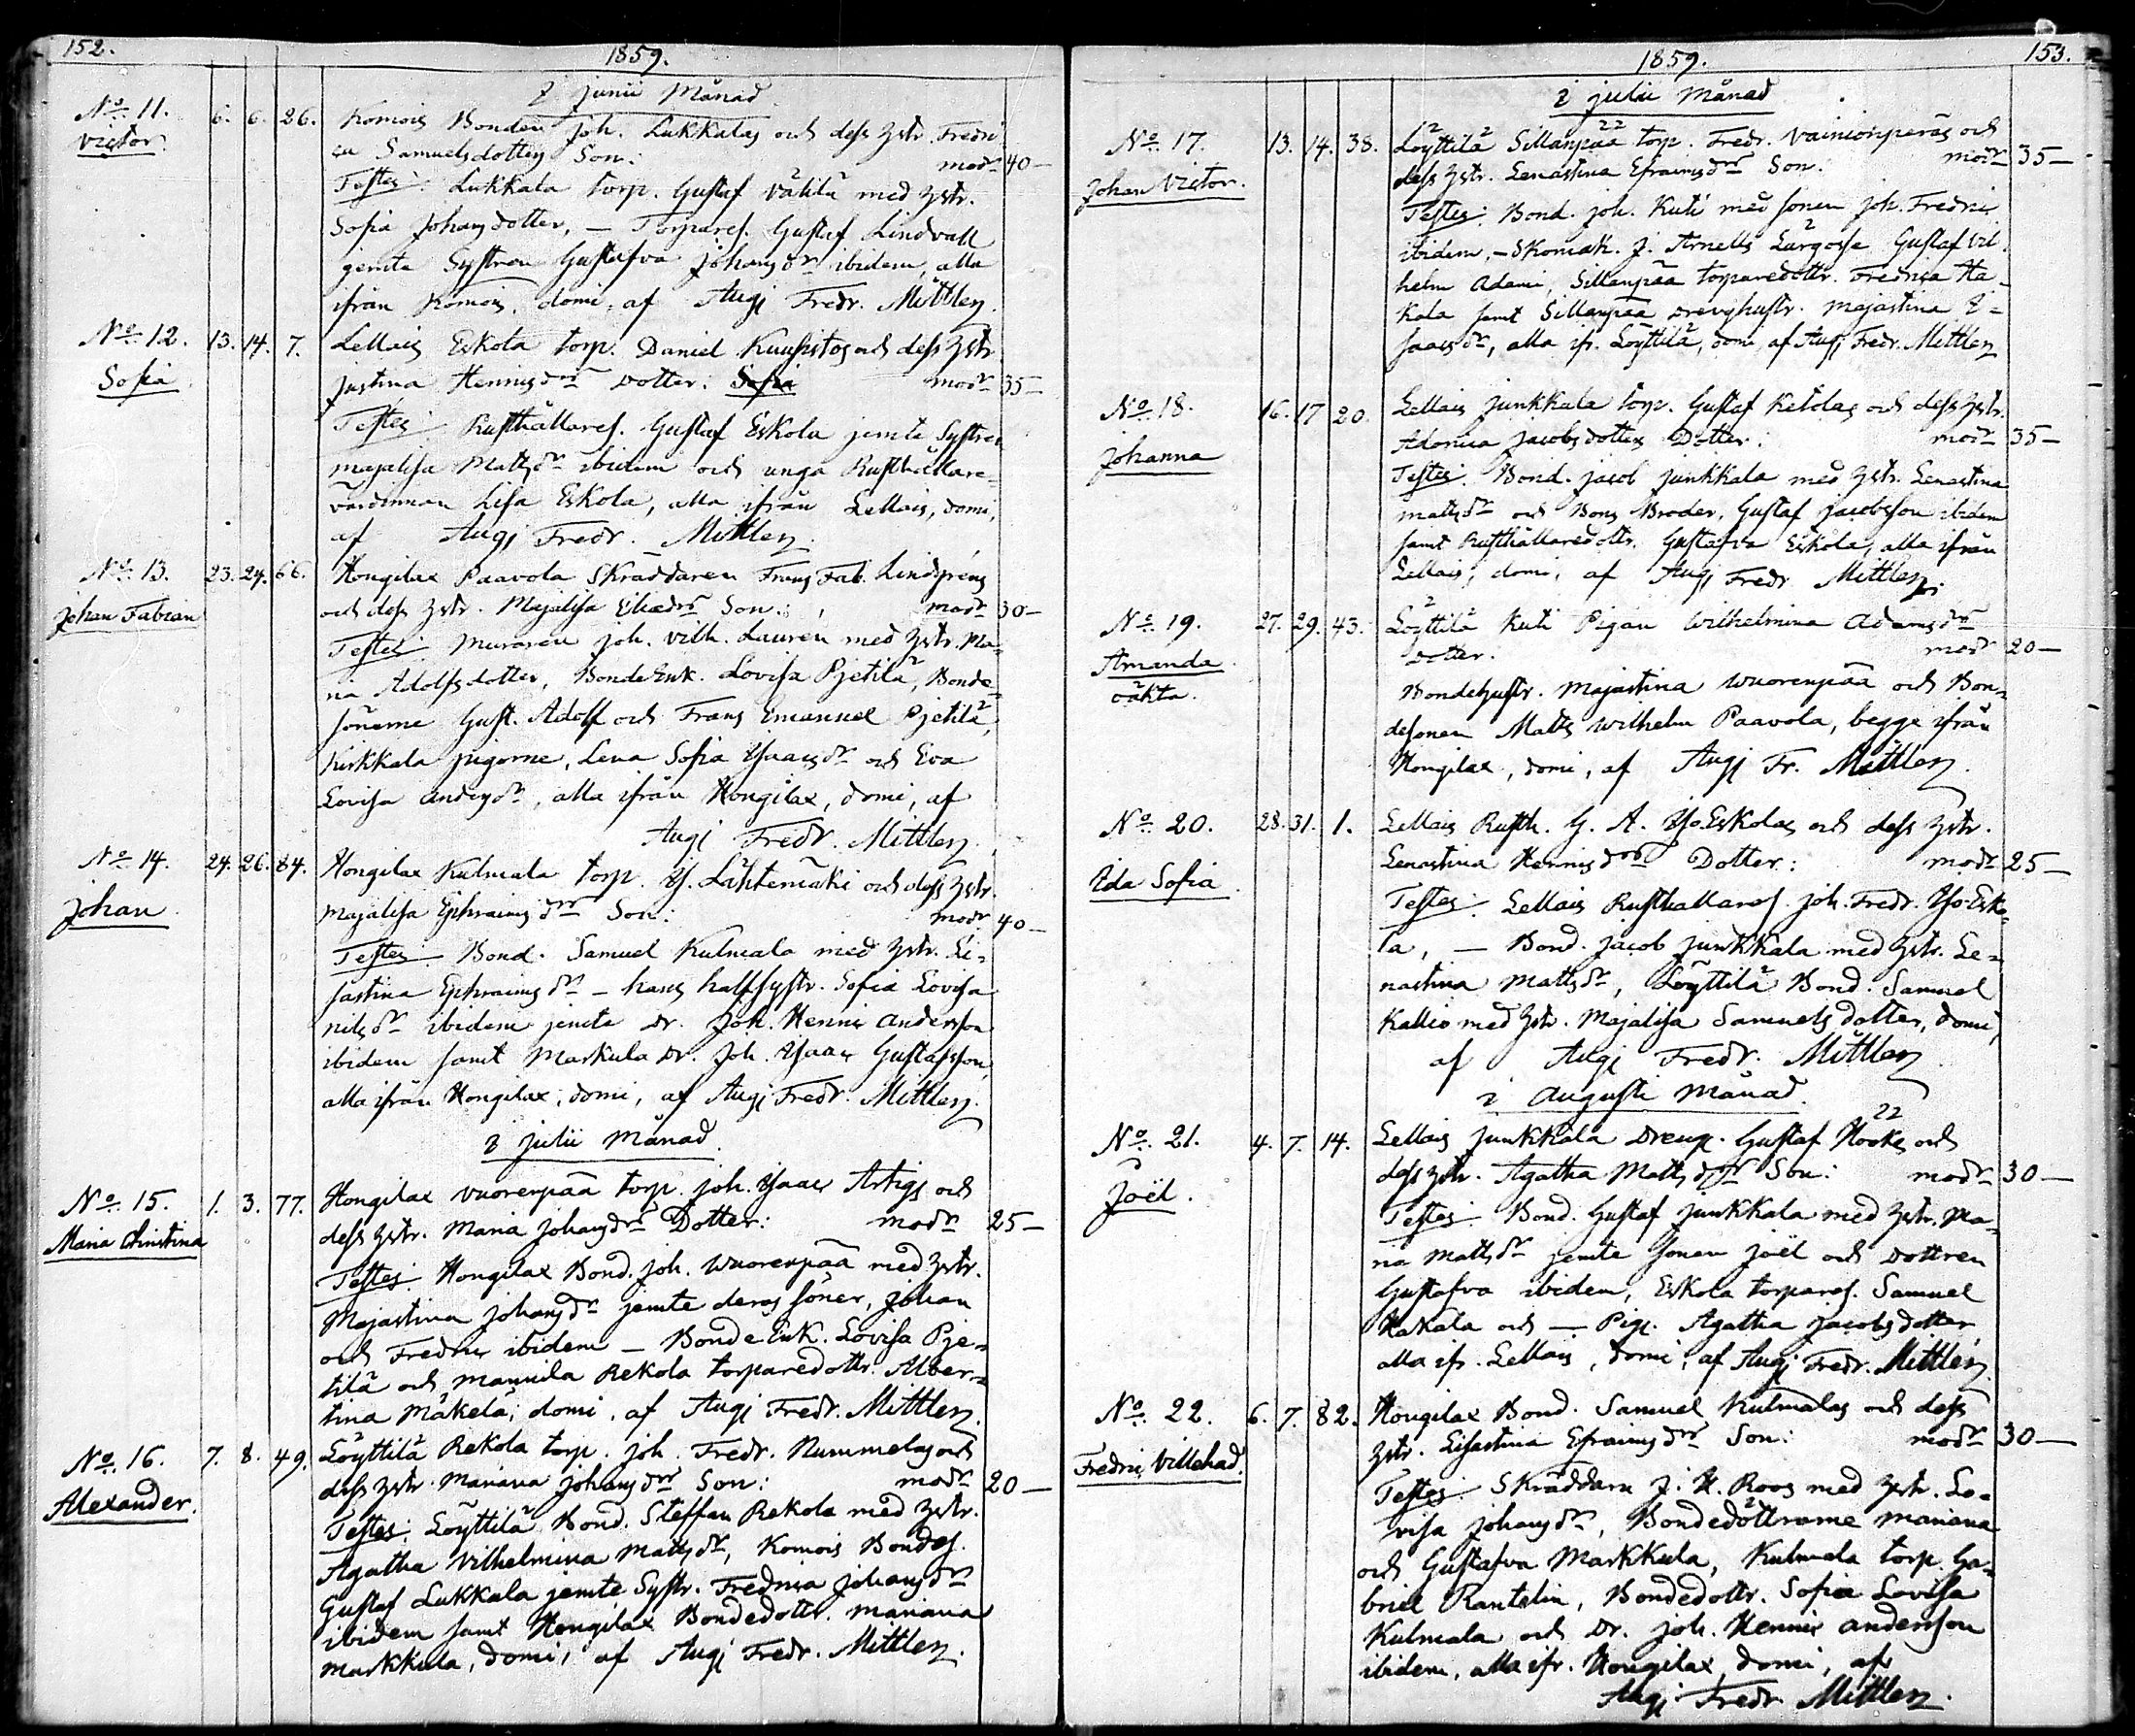 152.
1859.
I junii Månad
No 11. 6. 6. 26. Komois Bonden Joh. Lukkalas och dess hstr. Fredri
Victor. ca Samuelsdotters Son: modr 40—
Testes: Lukkala torp. Gustaf Vähilä med hstr.
Sofia Johansdotter, — Torpares. Gustaf Lindvall
jemte Systren Gustafva Johansdr ibidem, alla
ifrån Komois, domi, af Augj Fredr. Mittler.
No 12. 13. 14. 7. Lellais Eskola torp. Daniel Kuusistos och dess hstr
Sofia justina Hennisdrs dotter: Sofia modr 35—
Testes Rusthållares. Gustaf Eskola jemte Systren
majalisa Mattsdr ibidem och unga Rusthållare-
värdinnan Lisa Eskola, alla ifrån Lellais, domi,
af Augj Fredr. Mittler.
No 13. 23. 24. 66. Hongilax Paavola Skräddaren Frans Fab. Lindgréns
Johan Fabian och dess hstr. Majalisa Elisedrs Son: modr 30—
Testes Muraren Joh. Vilh. Laurén med hstr. Ma-
ria Adolfsdotter, BondeEnk. Lovisa Pjetilä, Bonde-
sönerne Gust. Adolf och Frans Emanuel Pjetilä,
Kirkkala pigorne, Lena Sofia Isaacsdr och Eva
Lovisa Andersdr, alla ifrån Hongilax, domi, af
Augj Fredr. Mittler.
No 14. 24. 26. 84. Hongilax Kulmala torp. Is. Lähtemäki och dess hstr.
Johan Majalisa Ephraimsdrs Son: modr 40—
Testes Bond. Samuel Kulmala med hstr. Li-
sastina Ephraimsdr — hans halfsystr. Sofia Lovisa
nilsdr ibidem jemte Dr. Joh. Henric Andersson
ibidem samt Markula Dr. Joh. Isaac Gustafsson,
alla ifrån Hongilax, domi, af Augj Fredr. Mittler.
I julii Månad
No 15. 1. 3. 77. Hongilax Vuorenpää torp. Joh. Isaac Artigs och
Maria Christina dess hstr. Maria Johansdrs Dotter: modr 25—
Testes: Hongilax Bond. Joh. Wuorenpää med hstr.
Majastina Johansdr jemte deras söner, Johan
och Fredric ibidem — BondeEnk. Lovisa Pje-
tilä och Mannila Rekola torparedottr. Alber-
tina Mäkelä, domi, af Augj Fredr. Mittler.
No 16. 7. 8. 49. Löyttilä Rekola torp. Joh. Fredr. Nummelas och
Alexander. dess hstr. Mariana Johansdrs Son: modr 20—
Testes: Löyttilä Bond. Steffan Rekola med hstr.
Agatha Vilhelmina Mattsdr, Komois Bondes.
Gustaf Lukkala jemte Systr. Fredrica Johansdr
ibidem samt Hongilax Bondedottr. Mariana
Markkula, domi, af Augj Fredr. Mittler.
1859.
153.
I julii Månad
No 17. 13. 14. 38. Löyttilä Sillanpää torp. Fredr. Vainionperäs och
Johan Victor. dess hstr. Lenastina Efraimsdrs Son: modr 35—
Testes: Bond. Joh. Kuti med sonen Joh. Fredric
ibidem, — Skomak. J. Arnells Lärgosse Gustaf Vil-
helm Adami, Sillanpää torparedottr. Fredrica Ha-
kala samt Sillanpää Drenghustr. Majastina I-
saacsdr, alla ifr. Löyttilä, domi, af Augj Fredr. Mittler
No 18. 16. 17 20. Lellais Junkkala torp. Gustaf Ketolas och dess hstr.
Johanna Adamina Jacobsdotters Dotter: modr 35—
Testes: Bond. Jacob Junkkala med hstr. Lenastina
Mattsdr och Bons Broder, Gustaf Jacobsson ibidem
samt Rusthållaredottr. Gustafva Eskola, alla ifrån
Lellais, domi, af Augj Fredr Mittler.
No 19. 27. 29. 43. Löyttilä Kuti Pigan Wilhelmina Adamsdrs
Amanda Dotter: modr 20—
oäkta. Bondehustr. Majastina Wuorenpää och Bon-
desonen Matts Wilhelm Paavola, begge ifrån
Hongilax, domi, af Augj Fr. Mittler.
No 20. 28. 31. 1. Lellais Rusth. G. A. Iso-Eskolas och dess hstr.
Ida Sofia Lenastina Hennisdrs Dotter: modr 25—
Testes: Lellais Rusthållares. Joh. Fredr. Iso-Esko-
la, — Bond. Jacob Junkkala med hstr. Le-
nastina Mattsdr, Löyttilä Bond. Samuel
Kallio med hstr. Majalisa Samuelsdotter, domi,
af Augj Fredr. Mittler
i Augusti Månad.
No 21. 4. 7. 14. Lellais Junkkala Dreng. Gustaf Höökes och
Joël. dess hstr. Agatha Mattsdrs Son: modr 30—
Testes Bond. Gustaf Junkkala med hstr. Ma-
ria Mattsdr jemte sonen Joël och Dottren
Gustafva ibidem, Eskola torpares. Samuel
Hakala och — Pig. Agatha Jacobsdotter,
alla ifr. Lellais, domi, af Augj Fredr. Mittler.
No 22. 6. 7. 82. Hongilax Bond. Samuel Kulmalas och dess
Fredric Villehad. hstr. Lisastina Efraimsdrs Son: modr 30—
Testes: Skräddarn J. H. Roos med hstr. Lo-
visa Johansdr, Bondedöttrarne Mariana
och Gustafva Markkula, Kulmala torp. Ga-
briel Rantalin, Bondedottr. Sofia Lovisa
Kulmala och Dr. Joh. Henric Andersson
ibidem, alla ifr. Hongilax, domi, af
Augj Fredr. Mittler.